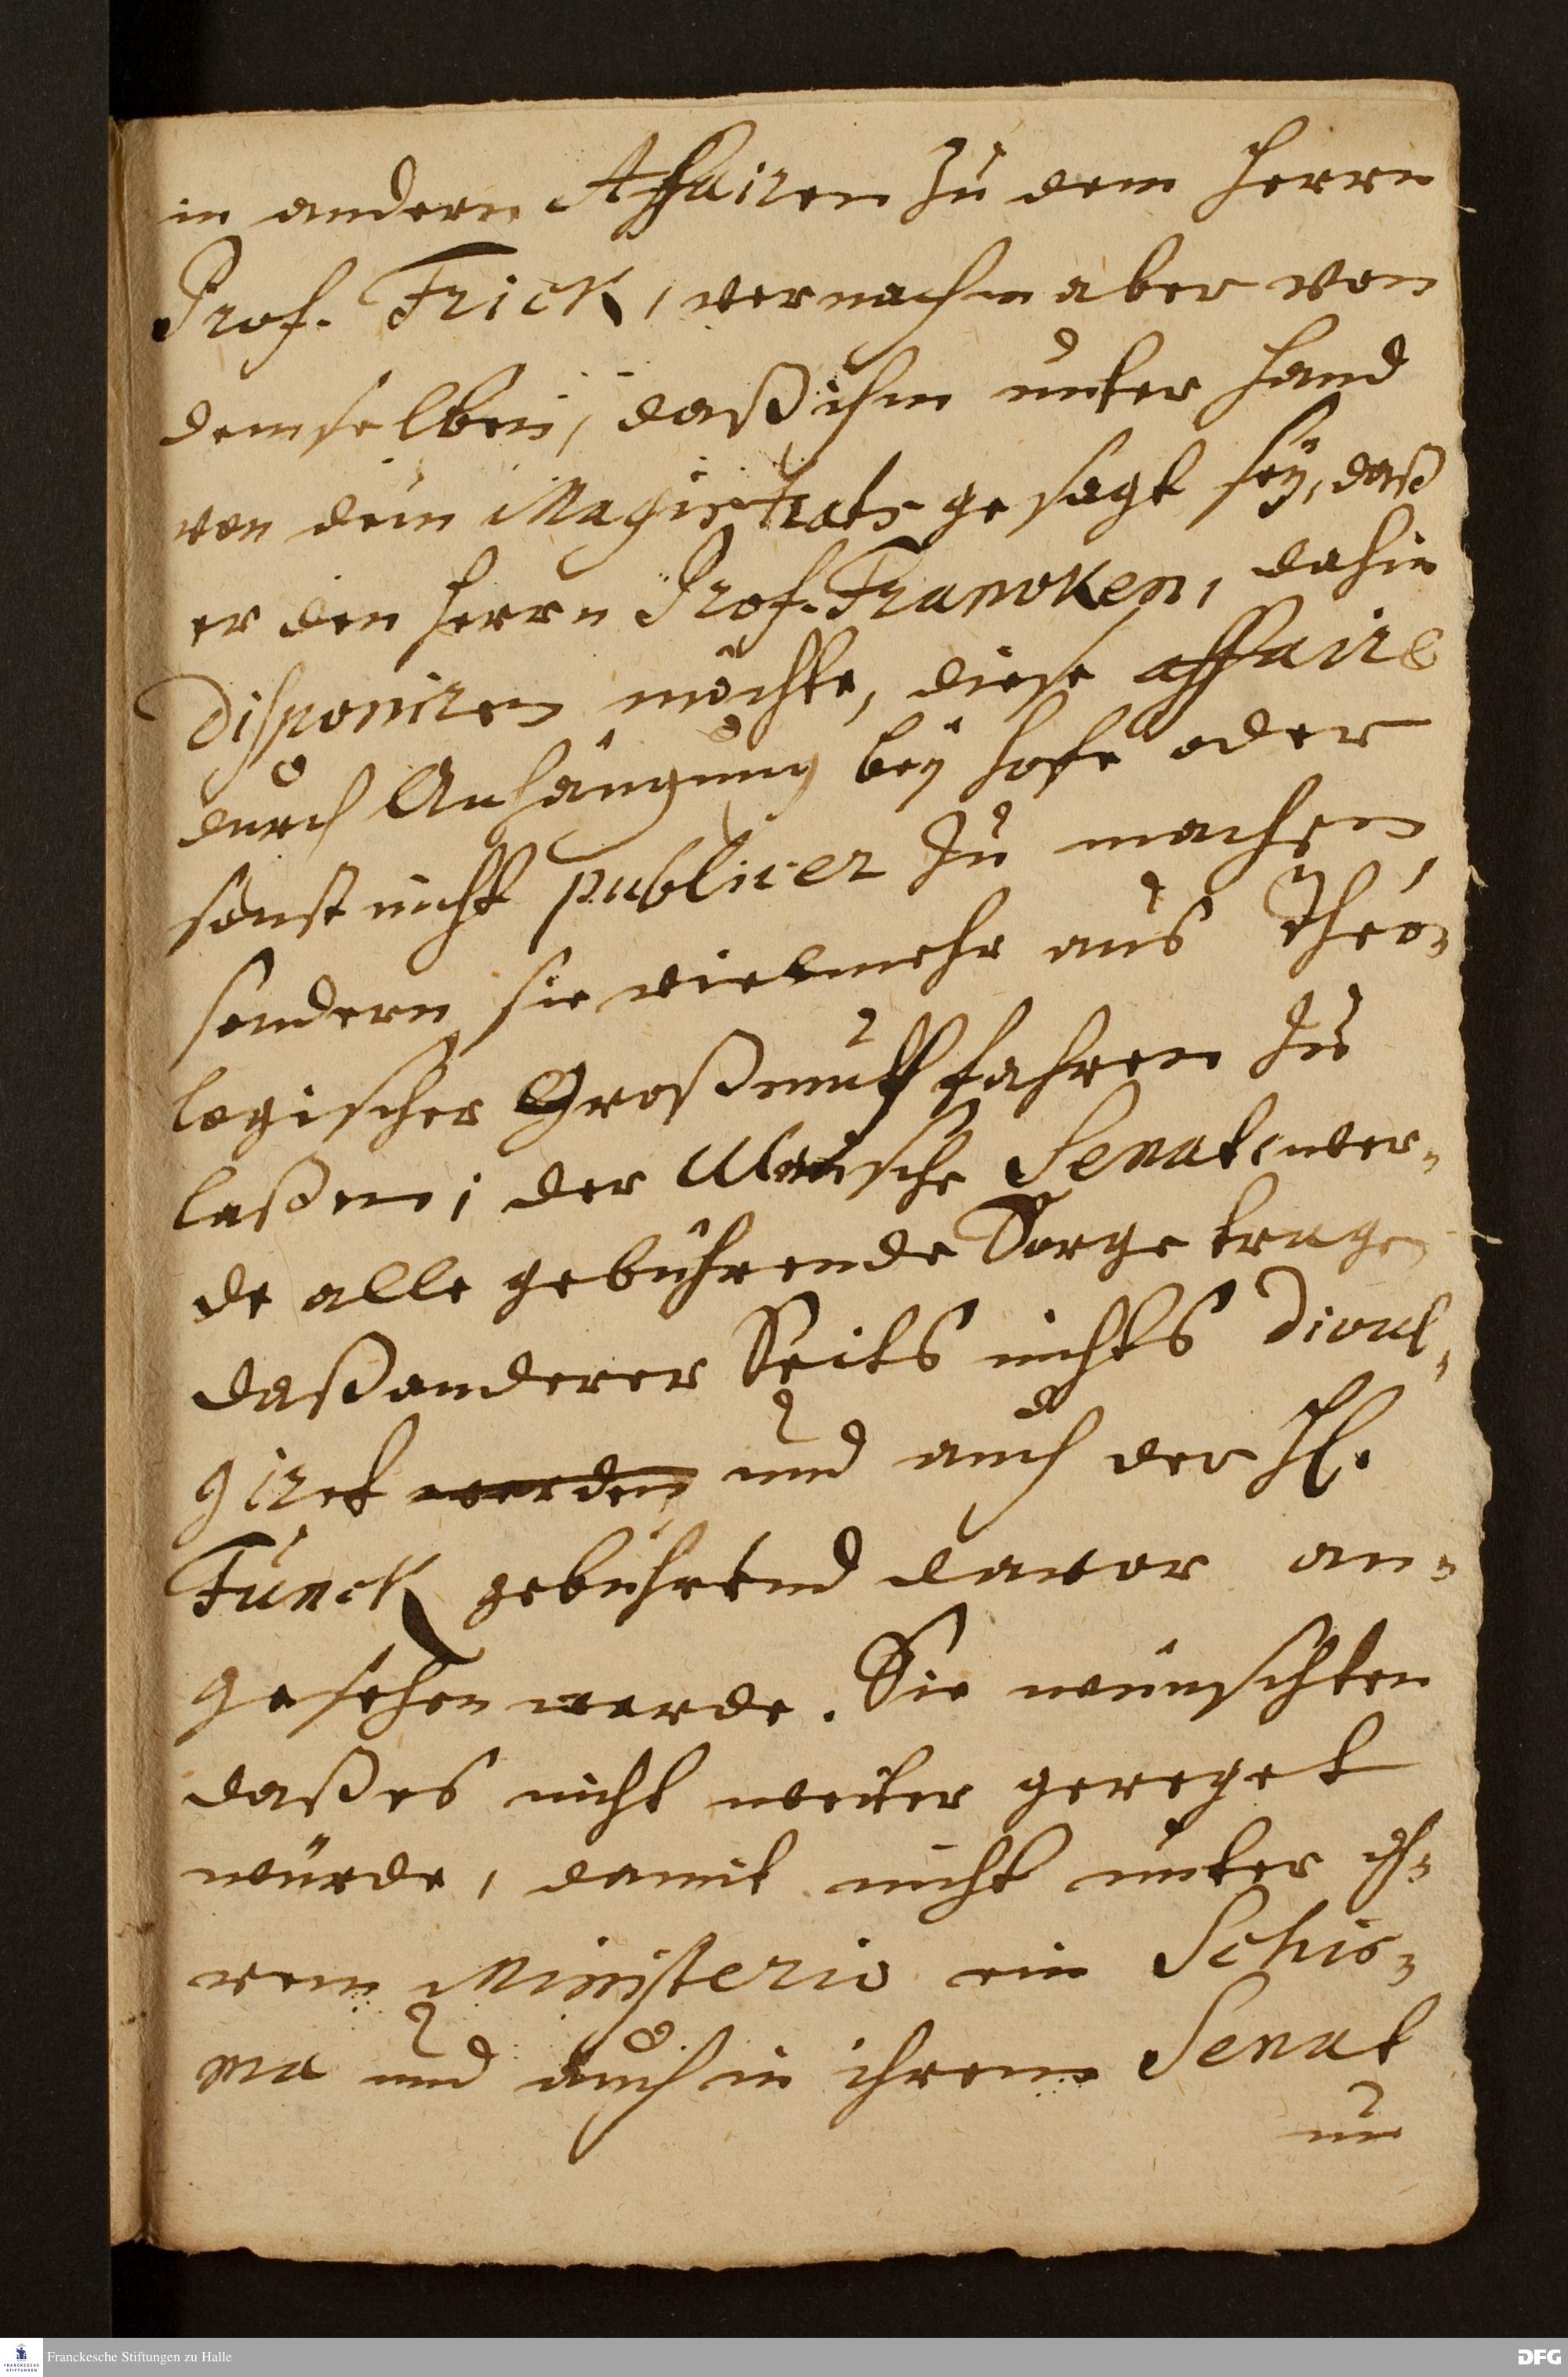 in andern Affairen zu dem Herrn
Prof. Frick, vernahm aber von
demselben, daß ihm unter Hand
von dem Magistrats gesagt sey, daß
er den Herrn Prof. Francken, dahin
disponiren möchte, diese affaire
durch Anhängung bey Hofe oder
sonst nicht publicer zu machen,
sondern sie vielmehr aus Theo-
logischer Großmuth fahren zu
laßen; der Ulmische Senat wer-
de alle gebührende Sorge tragen
daß anderer Seits nichts divul-
giret werden und auch der H.
Funck gebührend davor an-
gesehen werde. Sie wünschten
daß es nicht weiter gereget
würde, damit nicht unter ih-
rem Ministerio ein Schis-
ma und auch in ihrem Senat
un
Franckesche Stiftungen zu Halle
DFG